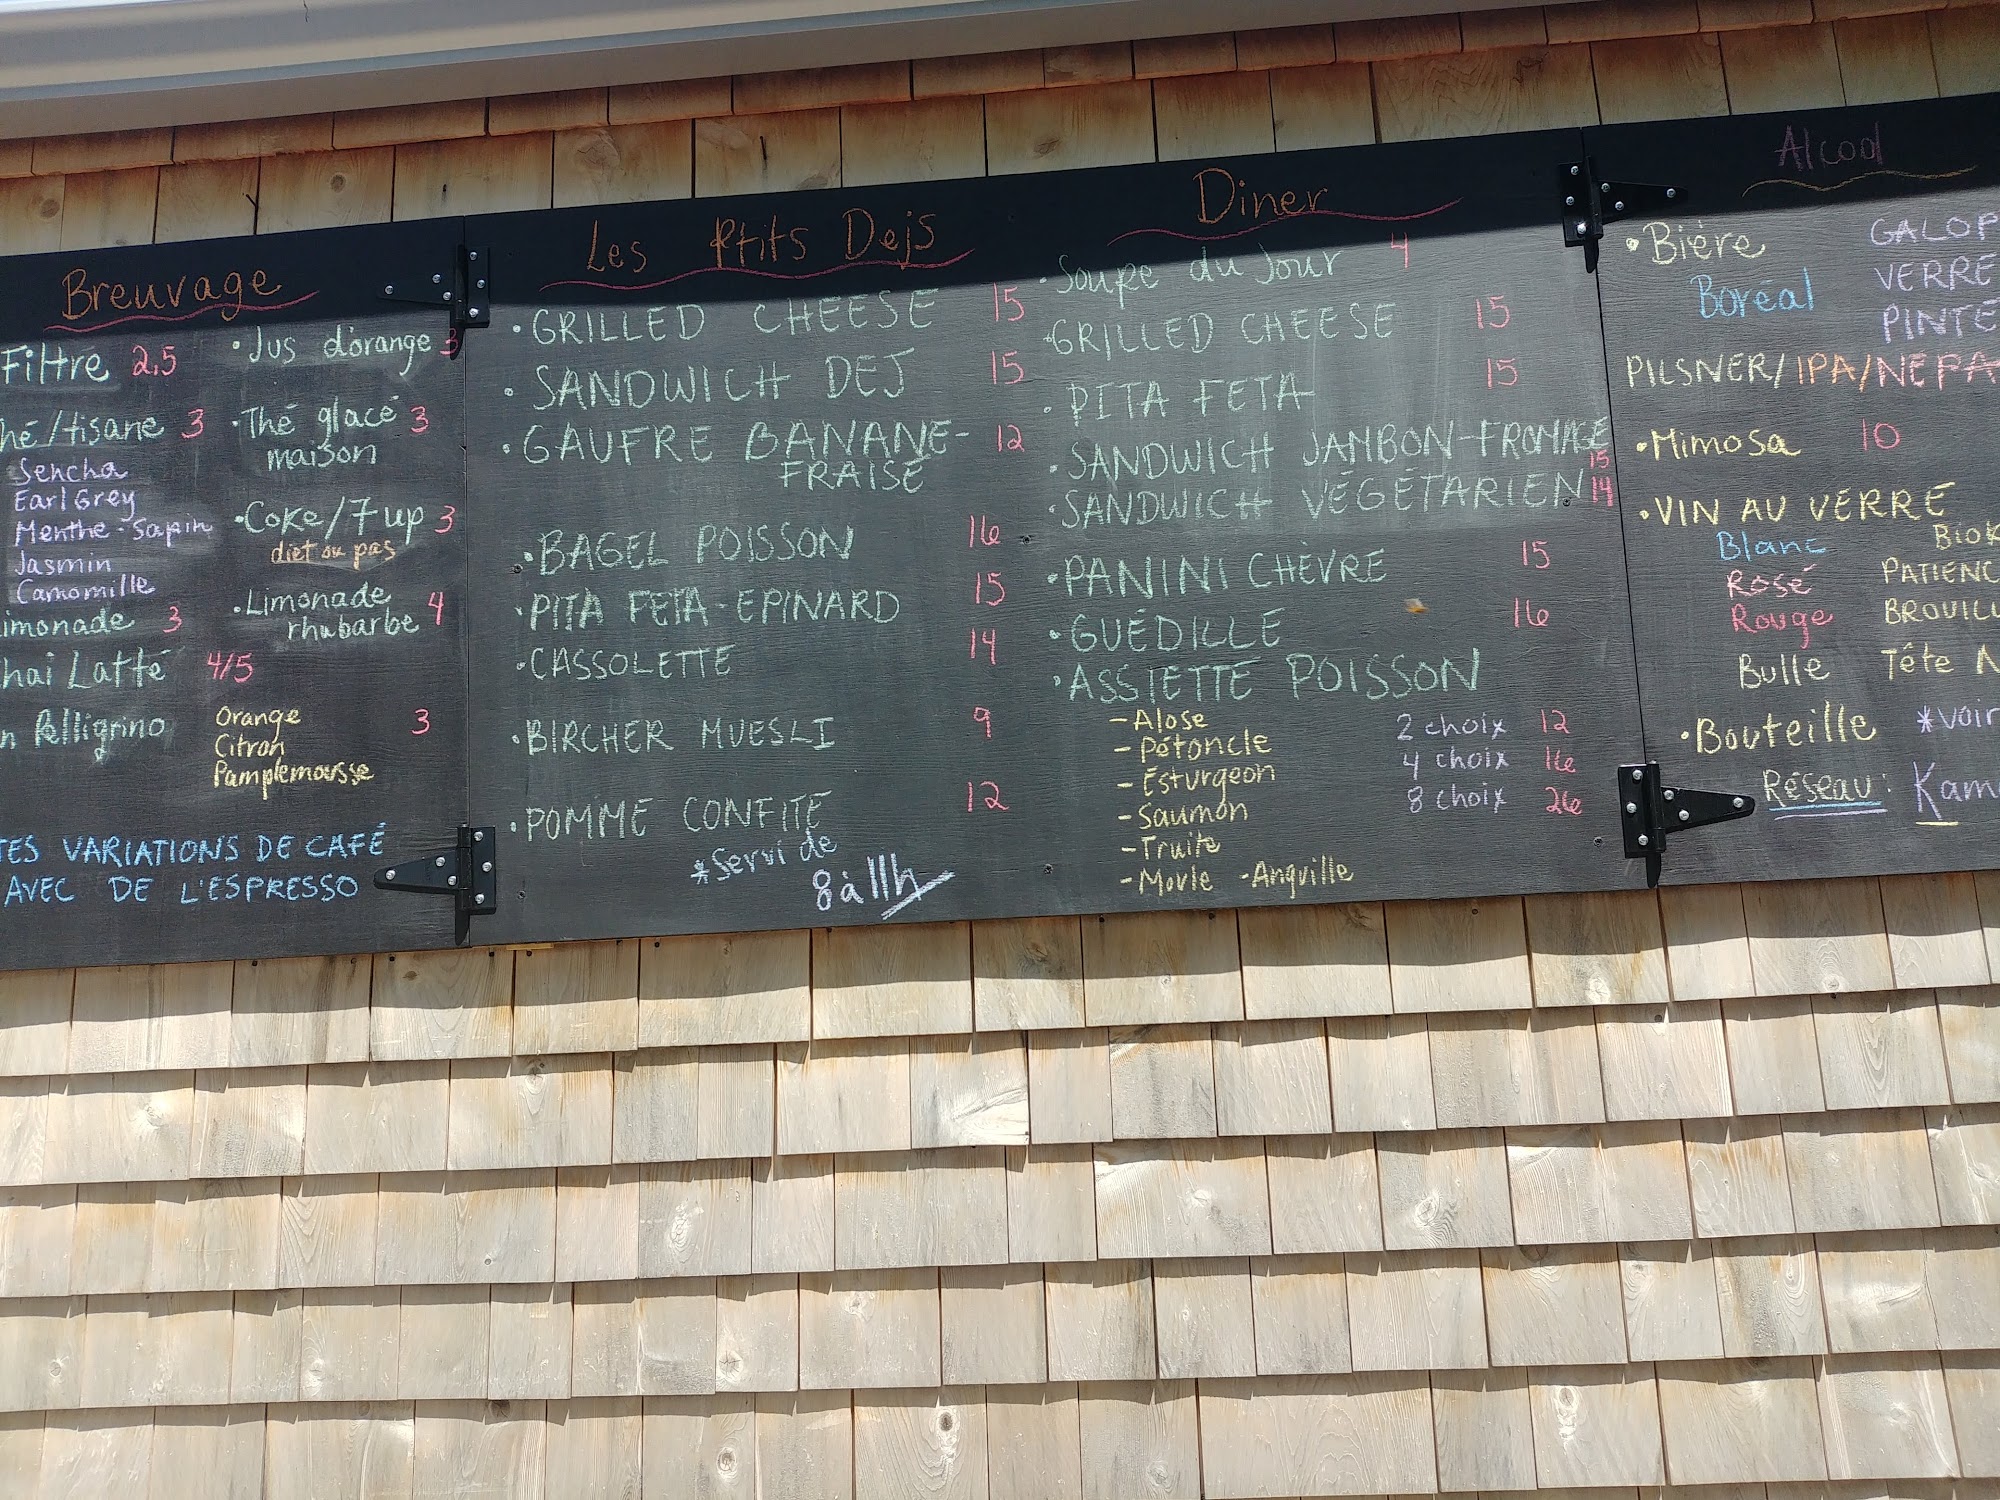 Breuvage
Filtre 2,5
hé/tisane 3
Sencha
Earl Grey
Menthe-Sapin
Jasmin
Camomille
imonade 3
hai Latté 4/5
n Pelligrino
Orange 3
Citron
Pamplemousse
•Jus d'orange 3
•Thé glacé 3
maison
•Coke/7up 3
diet ou pas
•Limonade
rhubarbe 4
TES VARIATIONS DE CAFÉ
AVEC DE L'ESPRESSO
Les Ptits Dejs
•GRILLED CHEESE 15
•SANDWICH DEJ 15
•GAUFRE BANANE- 12
FRAISE
•BAGEL POISSON 16
•PITA FETA-EPINARD 15
•CASSOLETTE 14
•BIRCHER MUESLI 9
•POMME CONFITE 12
*Servi de
8 à 11h
Diner
•Soupe du Jour 4
•GRILLED CHEESE 15
•PITA FETA 15
•SANDWICH JAMBON-FROMAGE 15
•SANDWICH VÉGÉTARIEN 14
•PANINI CHÈVRE 15
•GUÉDILLE 16
•ASSIETTE POISSON
-Alose
-Pétoncle
-Esturgeon
-Saumon
-Truite
-Moule -Anguille
2 choix 12
4 choix 16
8 choix 26
Alcool
•Bière
Boréal
GALOP
VERRE
PINTE
PILSNER/IPA/NEPA
•Mimosa 10
•VIN AU VERRE
Blanc BioK
Rosé PATIENC
Rouge BROUILL
Bulle Tête N
•Bouteille *voir
Réseau: Kam